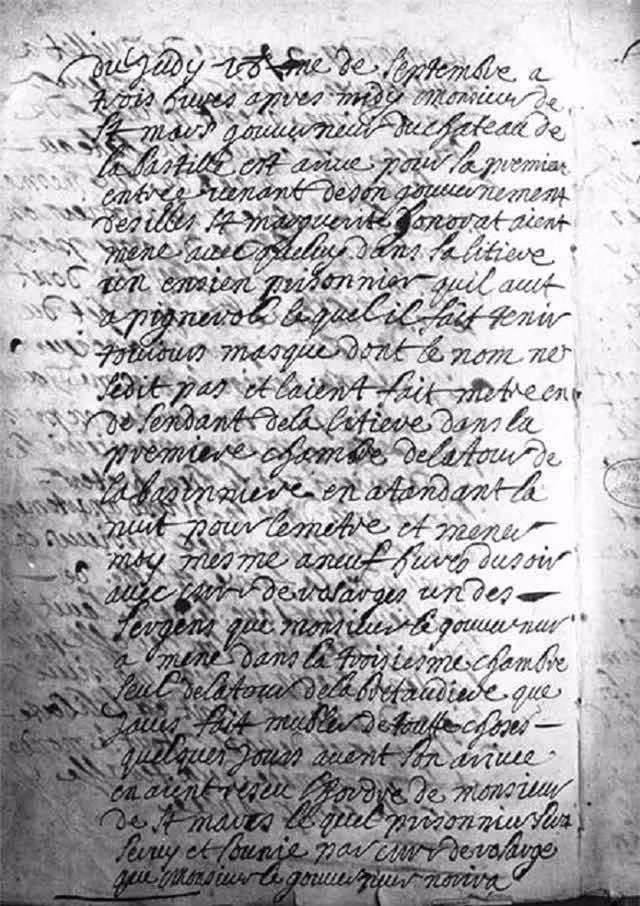 du Judy 18me de Septembre a
trois hures apres midy monsieur de
St mars gouverneur du chateau de
la bastille est arive pour sa premier
entrée venant de son gouvernement
des illes St marguerite honorat aient
mene avec queluy dans sa litiere
un ensien prisonnier quil avet
a pignerol lequel il fait tenir
touiours masque dont le nom ne
sedit pas et laient fait metre en
desendant dela litiere dans la
premiere chambre delatour de
la basinniere en atandant la
nuit pour lemetre et mener
moy mesme aneuf hures dusoir
avec de rosarges un des
sergens que monsieur le gouverneur
a mene dans la troisiesme chambre
seul delatour dela bretaudiere que
javes fait mubler de touste choses
quelques jours avent son arivee
en aient reseu lhordre de monsieur
de St mars lequel prisonnier sera
servy et sounie par de rosarge
que monsieur le gouverneur norira